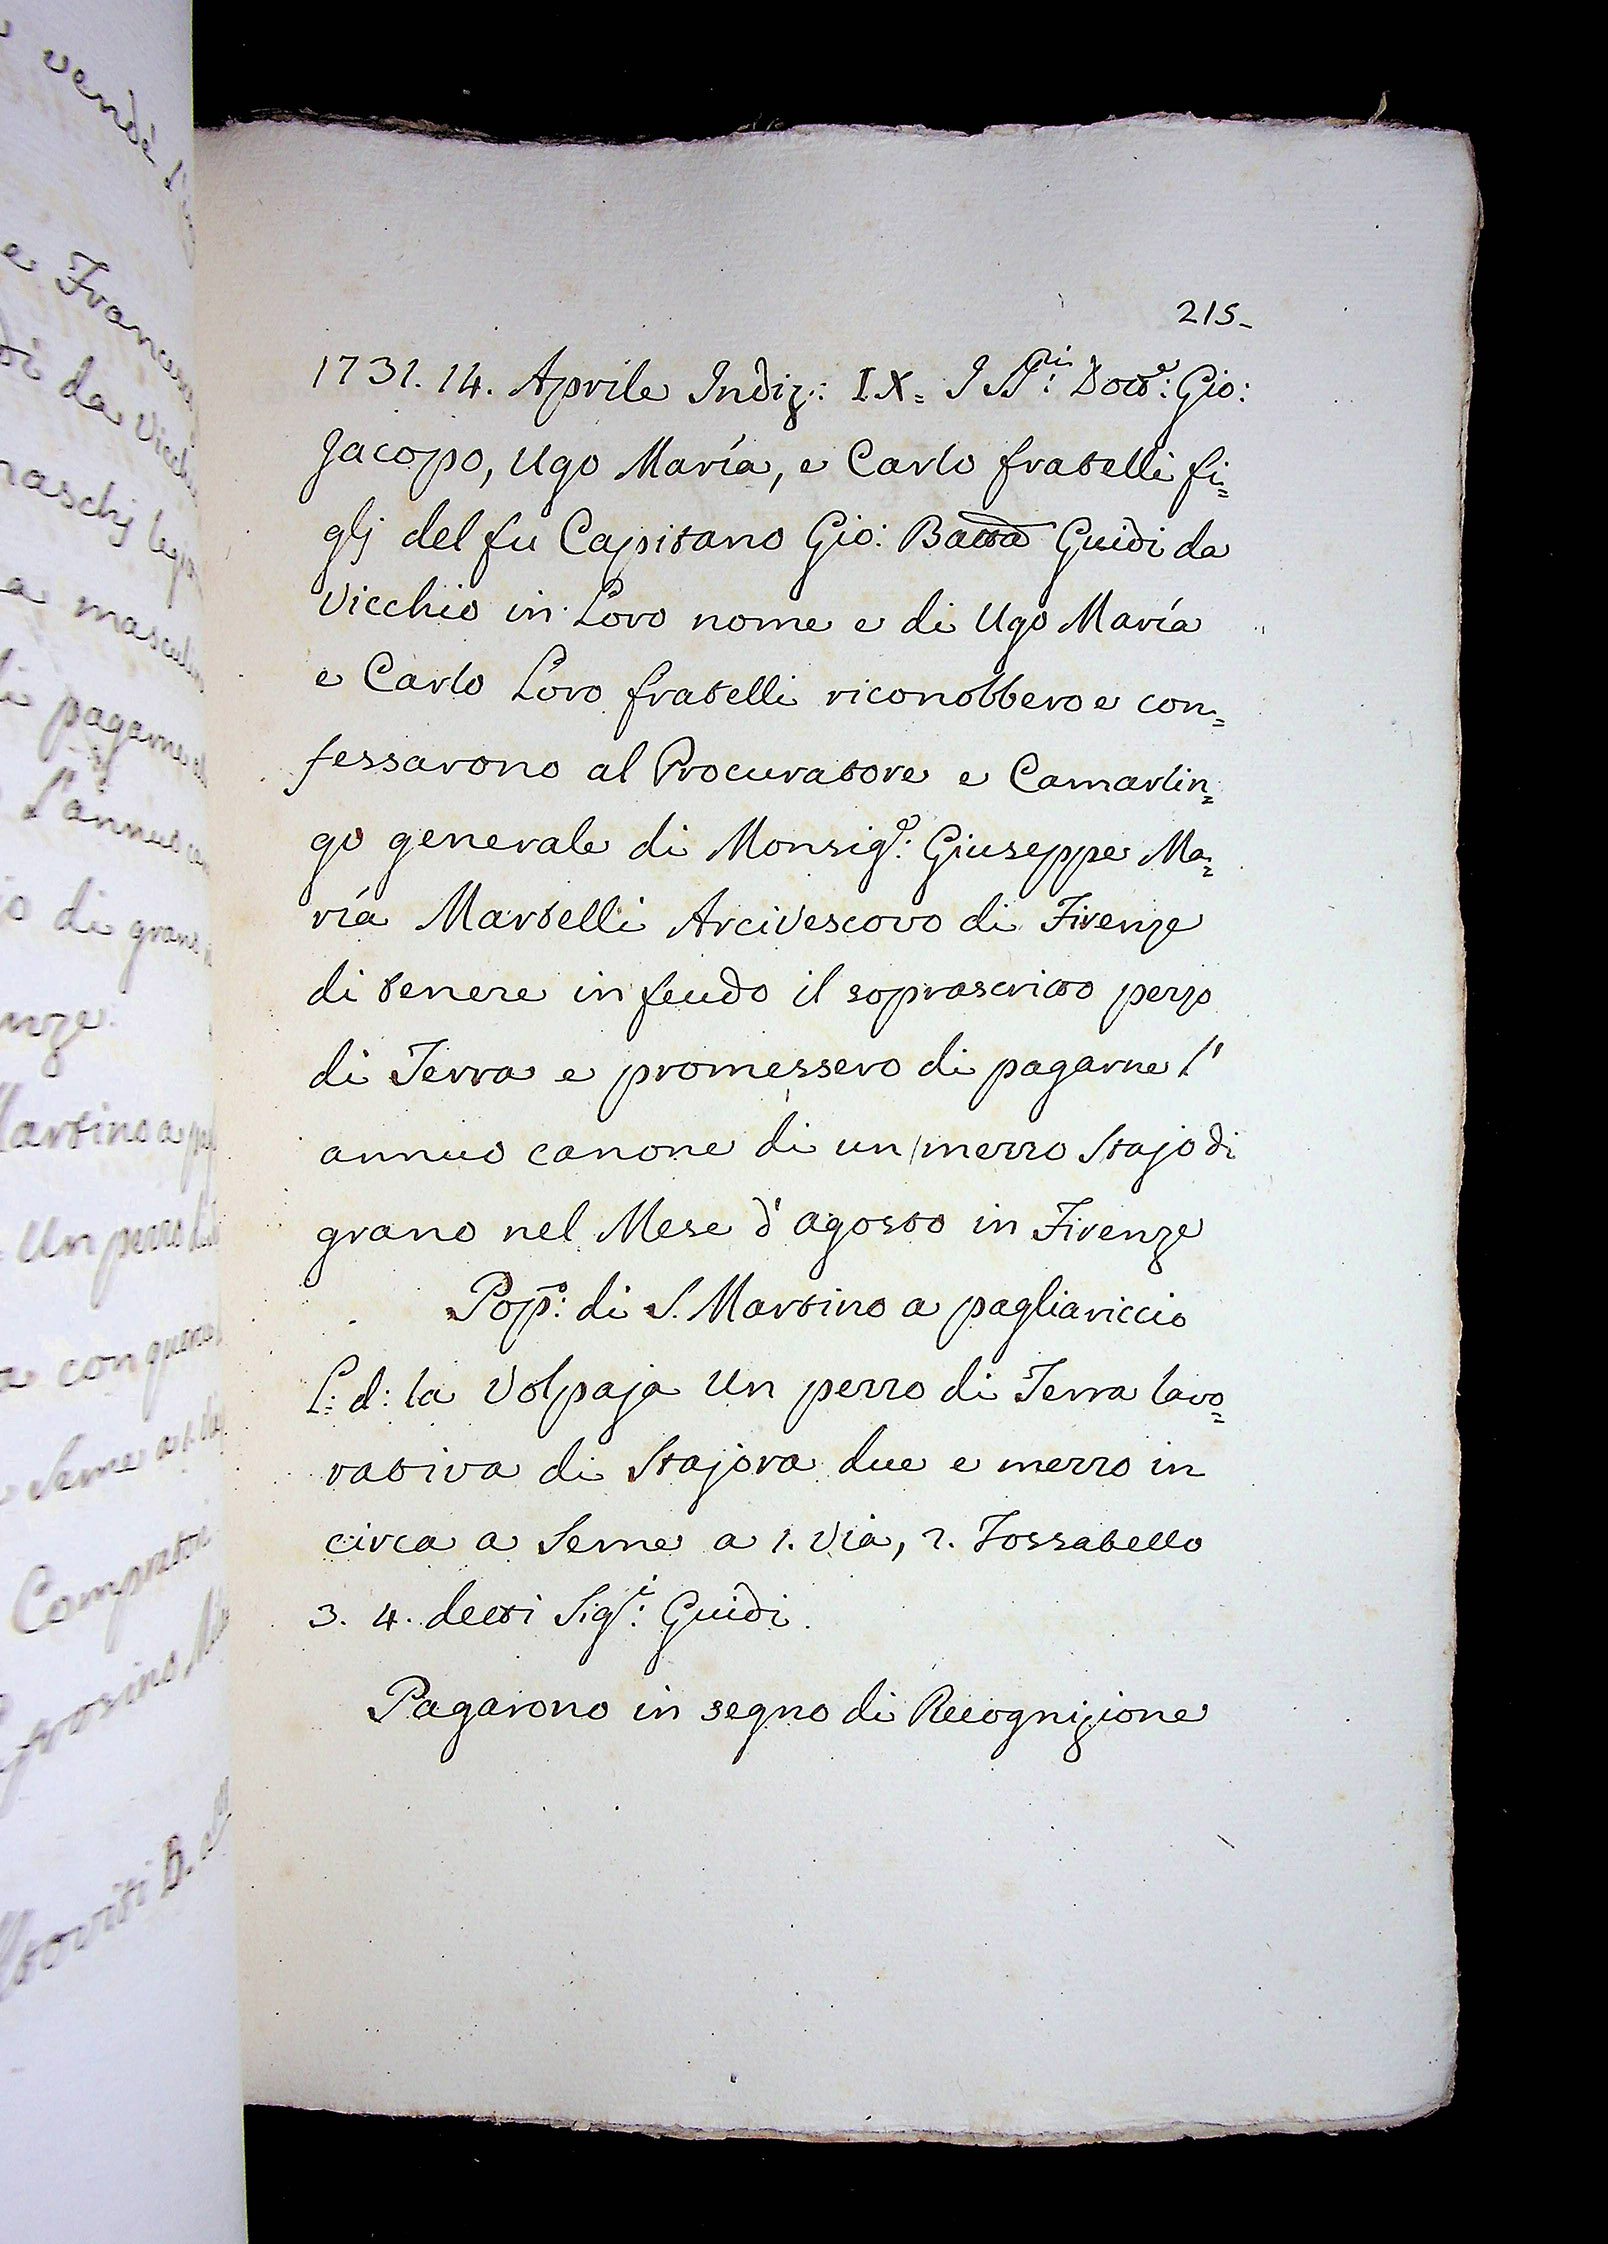 vendè l'
e Frances
di da Vicch
maschj leg
a mascul
di pagame
L'annuo ca
jo di grano
nze.
Martino a
Un pezzo
a con
Seme a 1.
Comprator
frosino
ltoviti B.
215-
1731. 14. Aprile Indiz: IX= I SSri: Dotte: Gio:
Jacopo, Ugo María, e Carlo fratelli fi=
glj del fu Capitano Gio: Batta Guidi da
Vicchio in Loro nome e di Ugo María
e Carlo Loro fratelli riconobbero e con=
fessarono al Procuratore e Camarlin=
go generale di Monsige: Giuseppe Ma=
ría Martelli Arcivescovo di Firenze
di tenere in feudo il soprascritto pezzo
di Terra e promessero di pagarne l'
annuo canone di un mezzo Stajo di
grano nel Mese d'agosto in Firenze
Popo: di S. Martino a pagliariccio
L: d: la Volpaja Un pezzo di Terra lavo=
rativa di Stajora due e mezzo in
circa a Seme a 1. Via, 2. Fossatello
3. 4. detti Sigri: Guidi.
Pagarono in segno di Recognizione